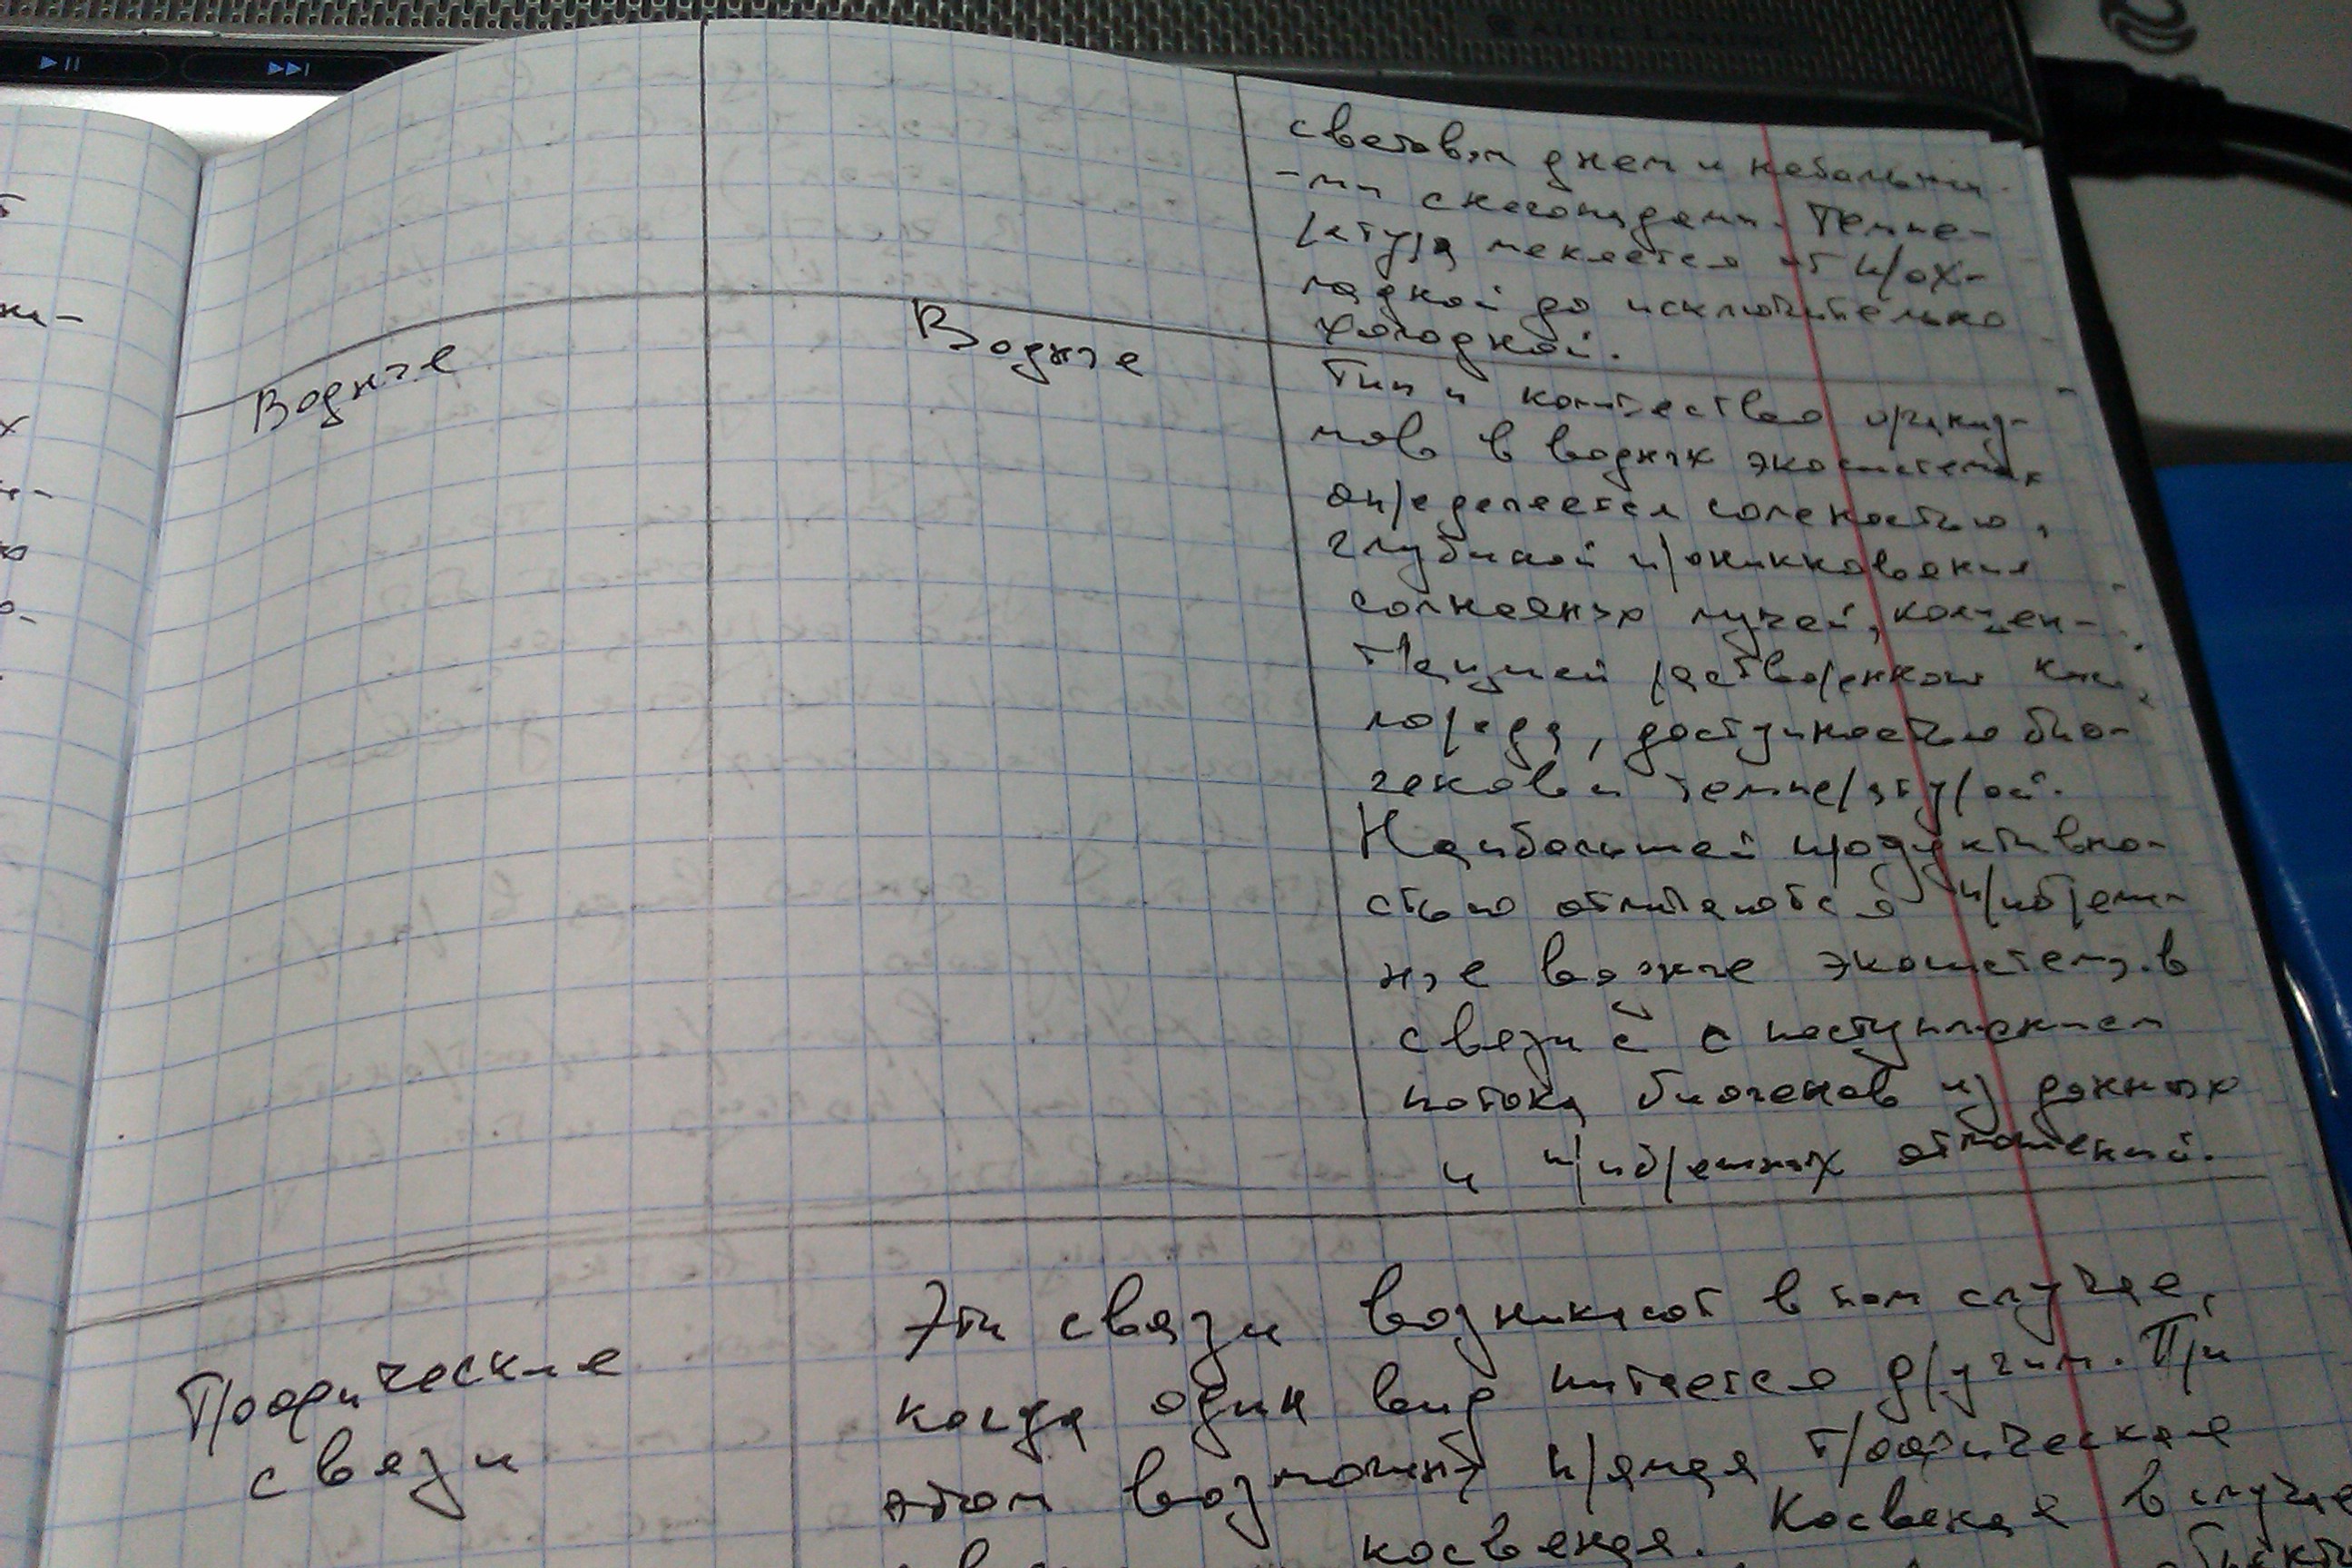 световым днем и небольши-
-ми снегопадами. Темпе-
ратура меняется от прох-
ладной до исключительно
холодной.
Водные
Водные
Тип и количество организ-
мов в водных экосистемах
определяется соленостью,
глубиной проникновения
солнечных лучей, концен-
трацией растворенного кис-
лорода, доступностью био-
генов и температурой.
Наибольшей продуктивно-
стью отличаются прибреж-
ные водные экосистемы. в
связи с с поступлением
потока биогенов из донных
и прибрежных отложений.
Трофические
связи
Эти связи возникают в том случае,
когда один вид питается другим. При
этом возможны прямая трофическая
косвеная. Косвеная в случае
ALTEC LANSING